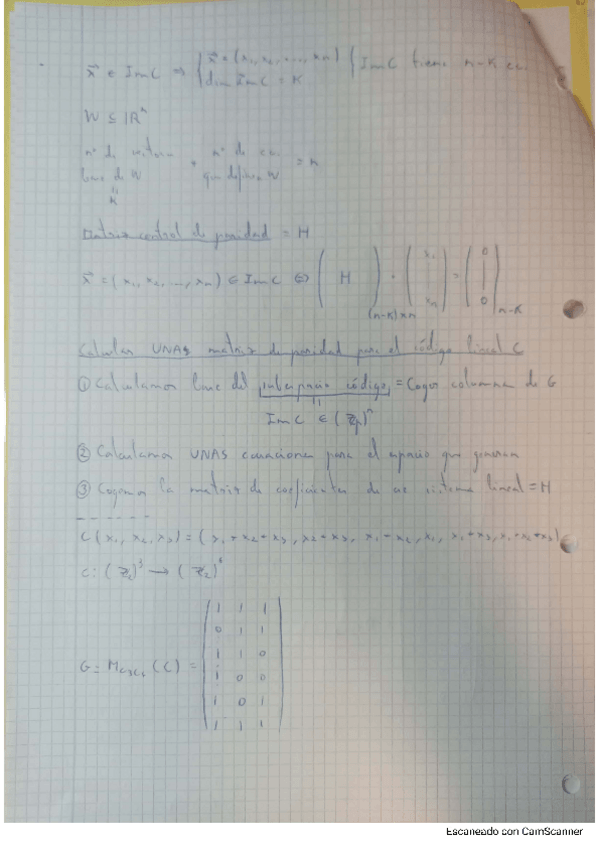 x⃗ ∈ Im C ⇒ { x⃗ = (x₁, x₂, ..., xₙ) { Im C tiene n-k ec.
dim Im C = k
W ⊆ ℝⁿ
nº de vectores + nº de ec. = n
base de W que define W
||
k
Matriz control de paridad = H
x⃗ = (x₁, x₂, ..., xₙ) ∈ Im C ⇔ ( H )(n-k)×n · (x₁ | xₙ) = (0 | 0)n-k
Calcular UNAS matriz de paridad para el código lineal C
① Calculamos base del subespacio código = Coger columnas de G
||
Im C ∈ (ℤp)ⁿ
② Calculamos UNAS ecuaciones para el espacio que generan
③ Cogemos la matriz de coeficientes de ese sistema lineal = H
C(x₁, x₂, x₃) = (x₁+x₂+x₃, x₂+x₃, x₁+x₂, x₁, x₁+x₃, x₁+x₂+x₃)
C: (ℤ₂)³ → (ℤ₂)⁶
1 1 1
0 1 1
1 1 0
G = M (C) =
1 0 0
1 0 1
1 1 1
Escaneado con CamScanner